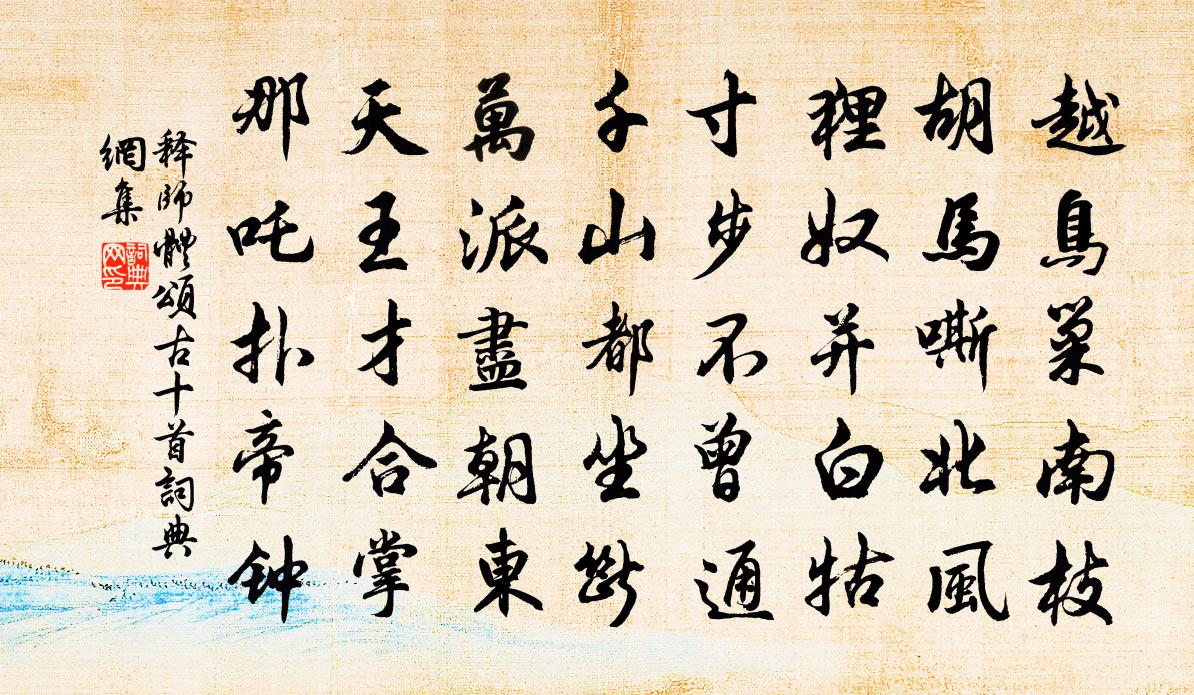 越鳥巢南枝
胡馬嘶北風
狸奴并白牯
寸步不曾通
千山都坐斷
萬派盡朝東
天王才合掌
那吒扑帝钟
释師體頌古十首詞典
網集
詞典
网印